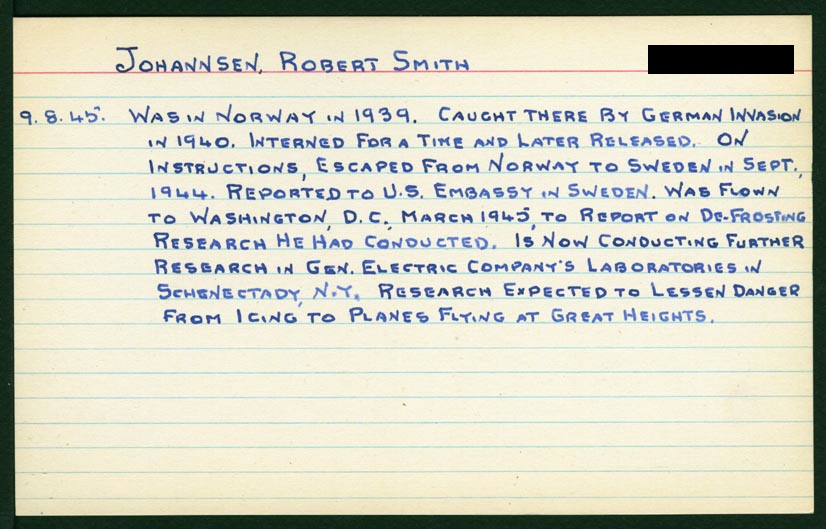 JOHANNSEN, ROBERT SMITH
9.8.45. WAS IN NORWAY IN 1939. CAUGHT THERE BY GERMAN INVASION
IN 1940. INTERNED FOR A TIME AND LATER RELEASED. ON
INSTRUCTIONS, ESCAPED FROM NORWAY TO SWEDEN IN SEPT.,
1944. REPORTED TO U.S. EMBASSY IN SWEDEN. WAS FLOWN
TO WASHINGTON, D.C., MARCH 1945, TO REPORT ON DE-FROSTING
RESEARCH HE HAD CONDUCTED. IS NOW CONDUCTING FURTHER
RESEARCH IN GEN. ELECTRIC COMPANY'S LABORATORIES IN
SCHENECTADY, N.Y. RESEARCH EXPECTED TO LESSEN DANGER
FROM ICING TO PLANES FLYING AT GREAT HEIGHTS.